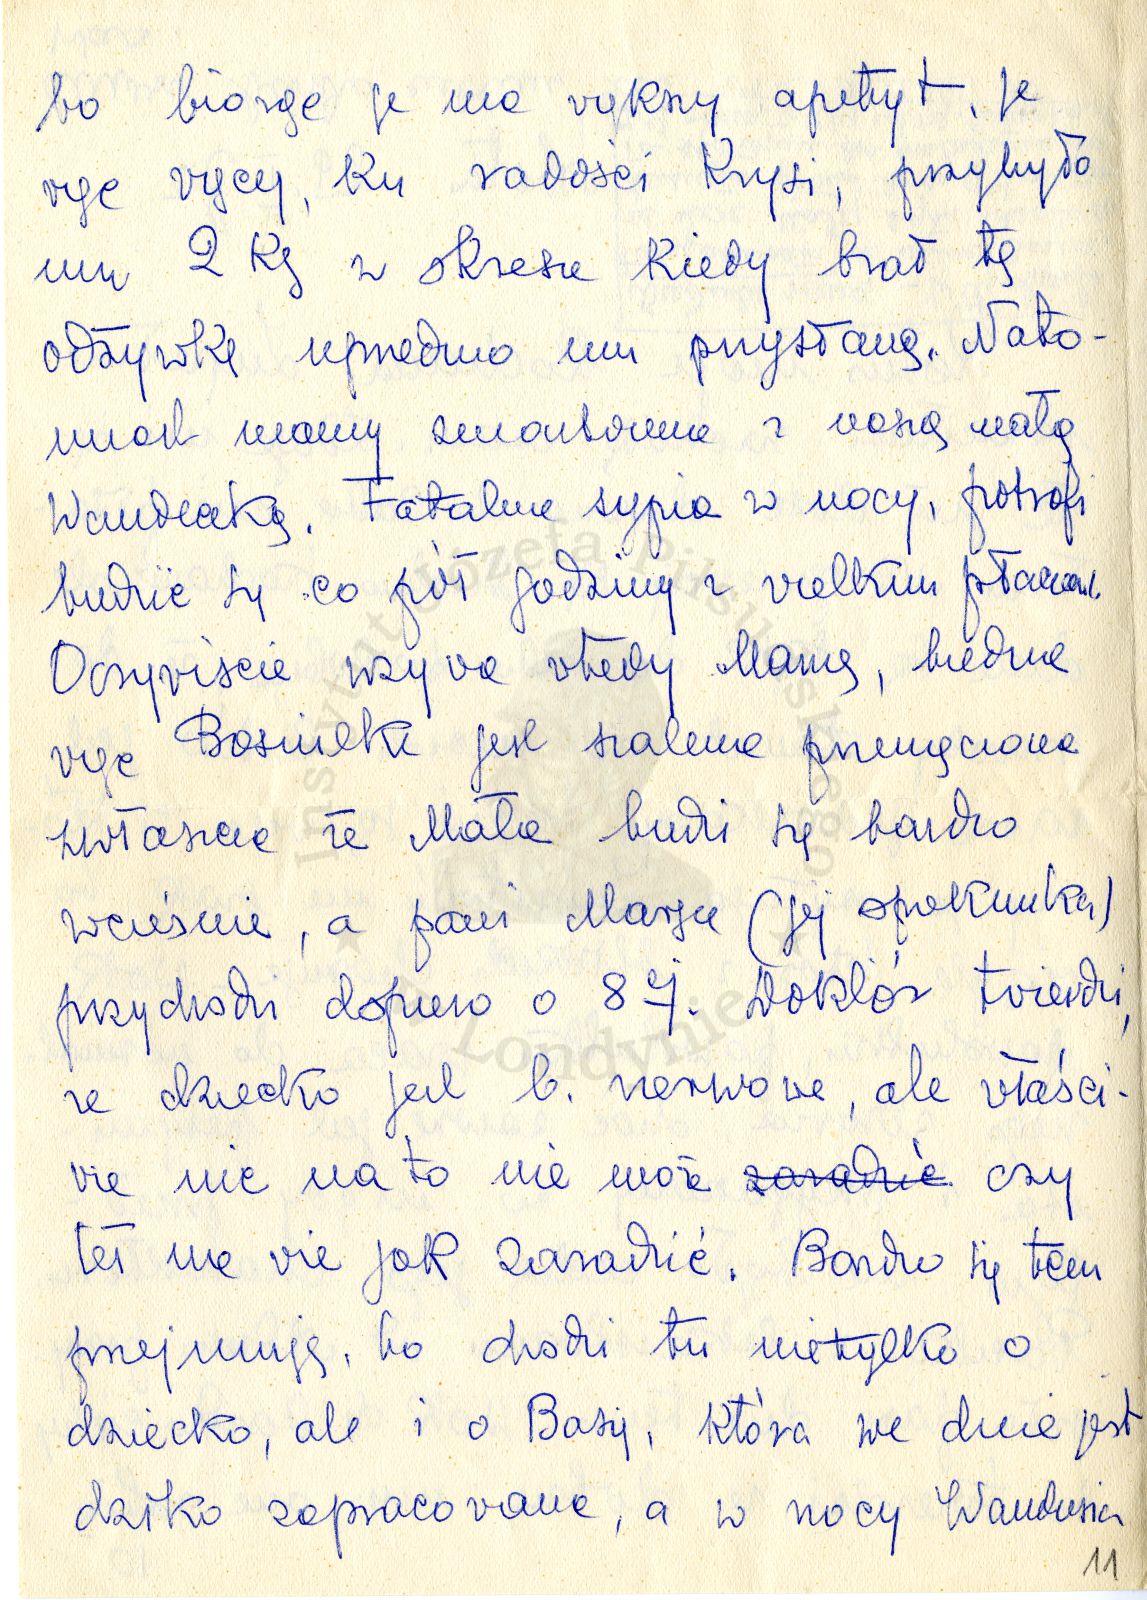 bo biorąc je ma większy apetyt, je
więc więcej, ku radości Krysi, przybyło
mu 2 kg w okresie kiedy brał tę
odżywkę uprzednio mu przysłaną. Nato-
miast mamy zmartwienie z naszą małą
Wandeczką. Fatalnie sypia w nocy, potrafi
budzić się co pół godziny z wielkim płaczem.
Oczywiście wzywa wtedy Mamę, biedna
więc Basieńka jest szalenie przemęczona
zwłaszcza że Mała budzi się bardzo
wcześnie, a pani Marysia (jej opiekunka)
przychodzi dopiero o 8 ej. Doktór twierdzi,
że dziecko jest b. nerwowe, ale właści-
wie nic na to nie może zaradzić czy
też nie wie jak zaradzić. Bardzo się tem
przejmuję, bo chodzi tu nietylko o
dziecko, ale i o Basię, która we dnie jest
dziko zapracowana, a w nocy Wandusia
11
Instytut Józefa Piłsudskiego
★ w Londynie ★